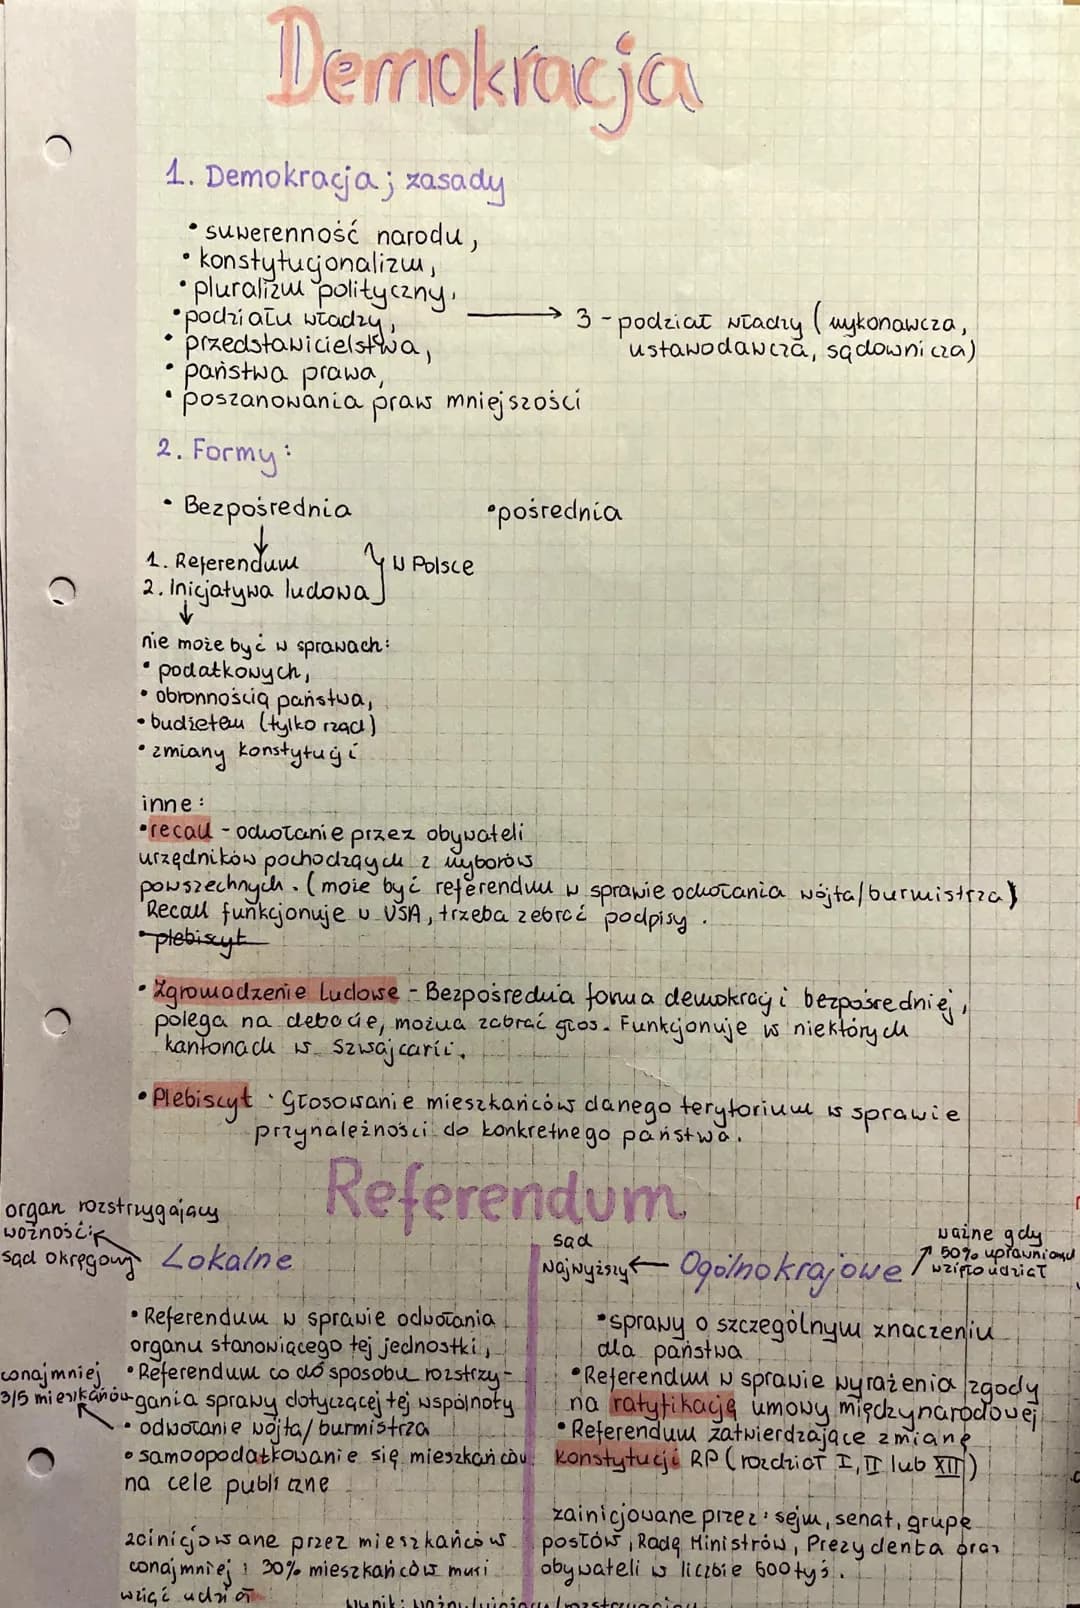 Demokracja
1. Demokracja; zasady
• suwerenność narodu,
• konstytucjonalizm,
• pluralizm polityczny,
• podziału władzy, → 3-podział władzy (wykonawcza,
ustawodawcza, sądownicza)
• przedstawicielstwa,
• państwa prawa,
• poszanowania praw mniejszości
2. Formy:
• Bezpośrednia • pośrednia
1. Referendum
2. Inicjatywa ludowa } w Polsce
nie może być w sprawach:
• podatkowych,
• obronnością państwa,
• budżetem (tylko rząd)
• zmiany konstytucji
inne:
• recall - odwołanie przez obywateli
urzędników pochodzących z wyborów
powszechnych. (może być referendum w sprawie odwołania wójta/burmistrza)
Recall funkcjonuje w USA, trzeba zebrać podpisy.
• plebiscyt
• Zgromadzenie ludowe - Bezpośrednia forma demokracji bezpośredniej,
polega na debacie, można zabrać głos. Funkcjonuje w niektórych
kantonach w Szwajcarii.
• Plebiscyt · Głosowanie mieszkańców danego terytorium w sprawie
przynależności do konkretnego państwa.
Referendum
organ rozstrzygający
ważność:
sąd okręgowy ← Lokalne
• Referendum w sprawie odwołania
organu stanowiącego tej jednostki,
• Referendum co do sposobu rozstrzy-
gania sprawy dotyczącej tej wspólnoty
conajmniej
3/5 mieszkańców
• odwołanie wójta/burmistrza
• samoopodatkowanie się mieszkańców
na cele publiczne
zainicjowane przez mieszkańców
conajmniej : 30% mieszkańców musi
wziąć udział
sąd
Najwyższy ← Ogólnokrajowe
ważne gdy
50% uprawnionych
wzięło udział
• sprawy o szczególnym znaczeniu
dla państwa
• Referendum w sprawie wyrażenia zgody
na ratyfikację umowy międzynarodowej
• Referendum zatwierdzające zmianę
konstytucji RP (rozdział I, II lub XII)
zainicjowane przez: sejm, senat, grupę
posłów, Radę Ministrów, Prezydenta oraz
obywateli w liczbie 500 tyś.